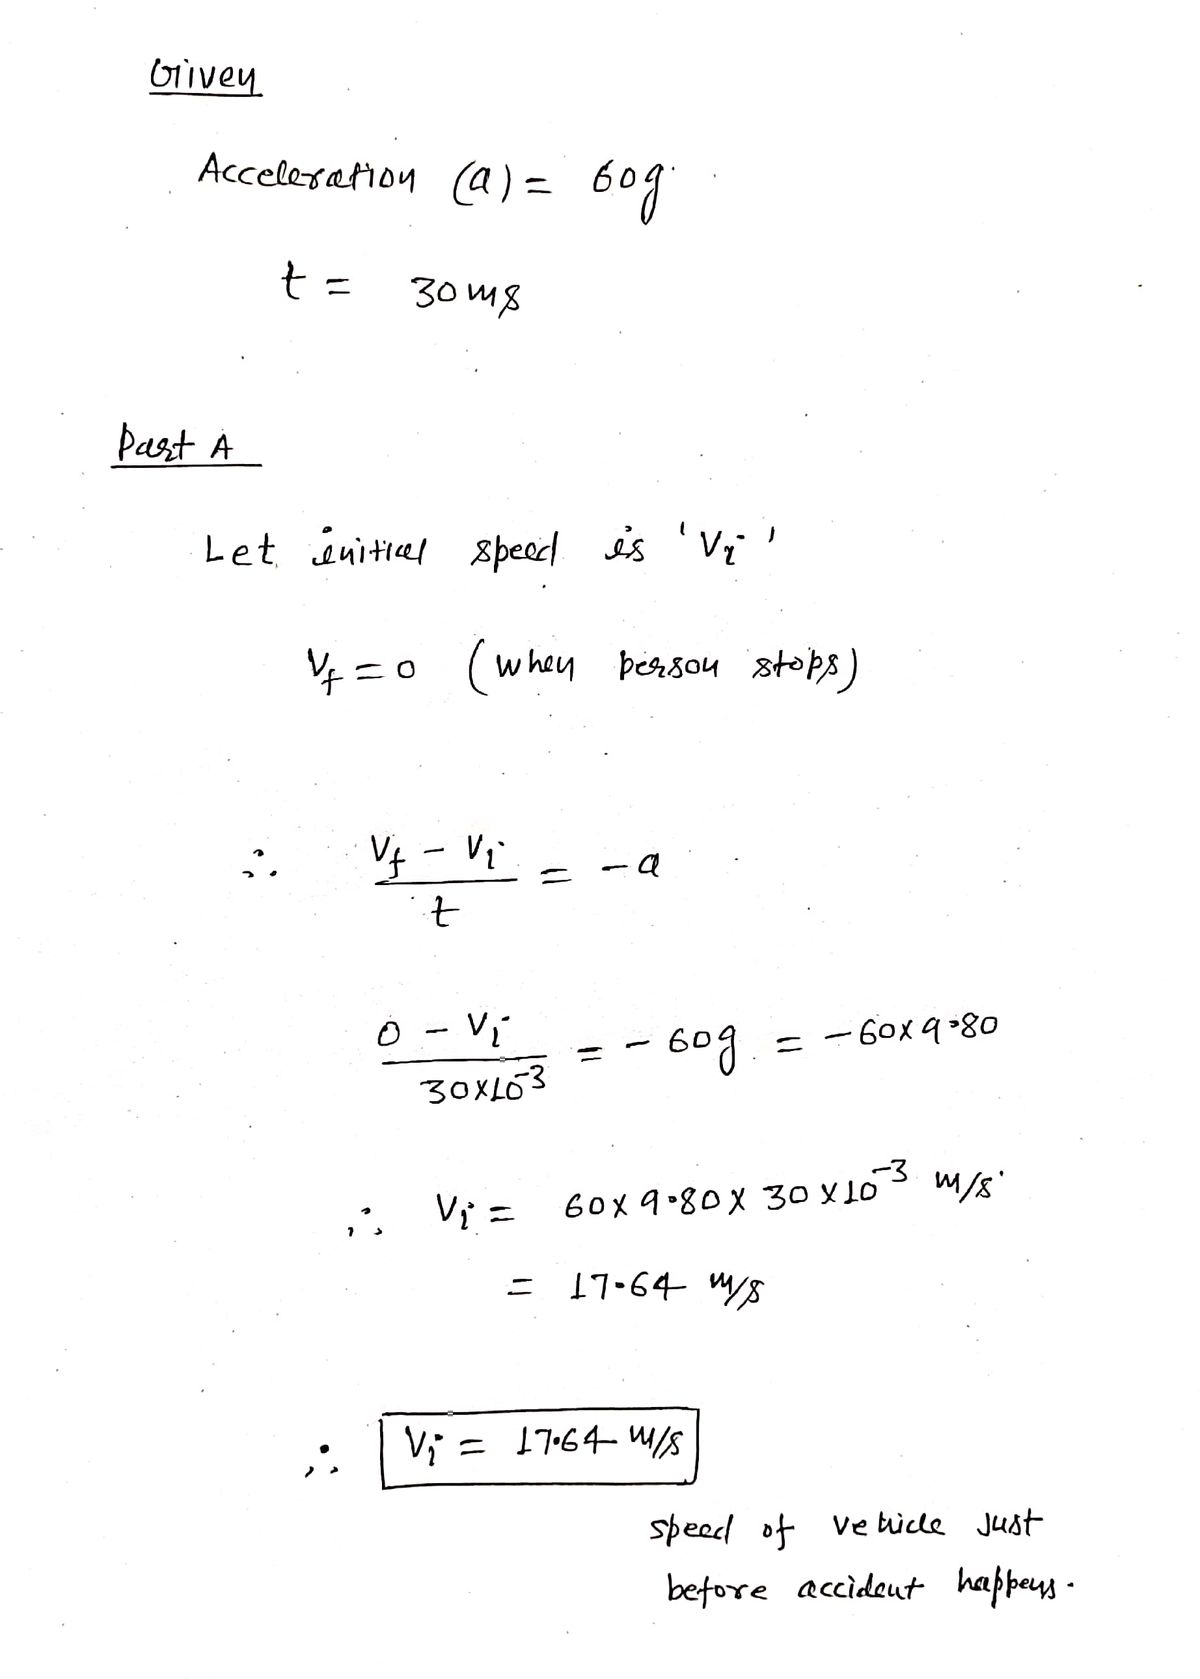 Given
Acceleration (a) = 60g
t = 30ms
Part A
Let initial speed is 'Vi'
Vf = 0 (when person stops)
∴ Vf - Vi / t = -a
0 - Vi / 30×10^-3 = - 60g = - 60×9.80
∴ Vi = 60×9.80×30×10^-3 m/s
= 17.64 m/s
∴ Vi = 17.64 m/s
speed of vehicle Just
before accident happens.